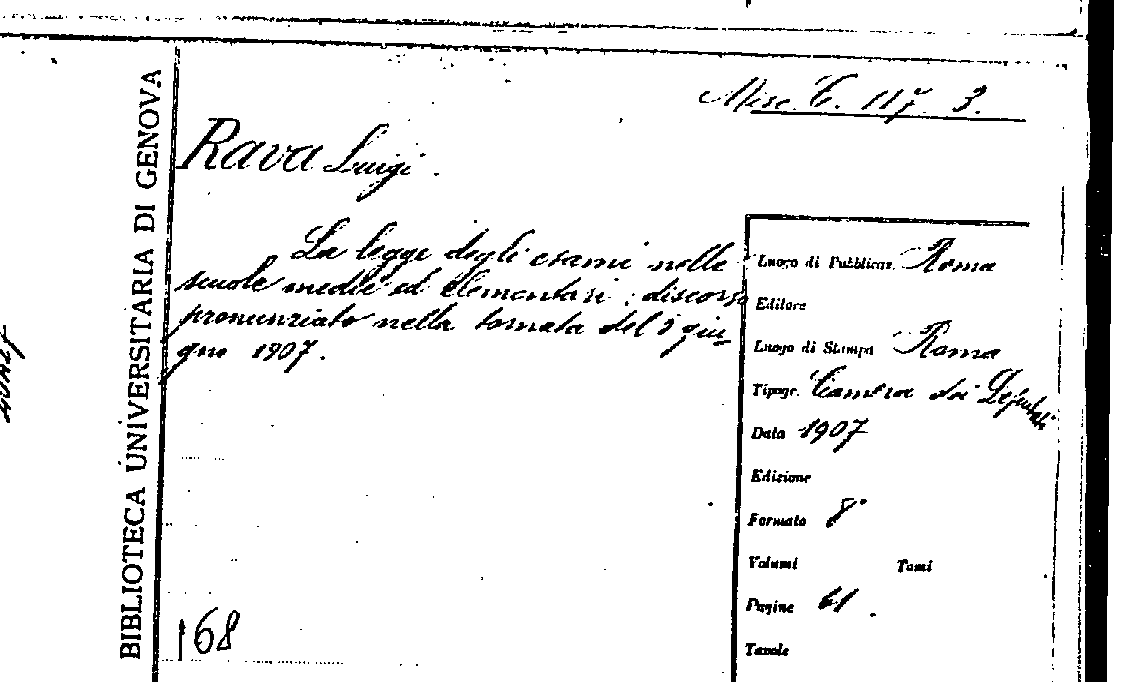 BIBLIOTECA UNIVERSITARIA DI GENOVA
Misc. C. 117 3.
Rava Luigi.
La legge degli esami nelle
scuole medie ed elementari: discorso
pronunziato nella tornata del giu-
gno 1907.
168
Luogo di Pubblicaz. Roma
Editore
Luogo di Stampa Roma
Tipogr. Camera dei Deputati
Data 1907
Edizione
Formato 8°
Volumi Tomi
Pagine 61.
Tavole